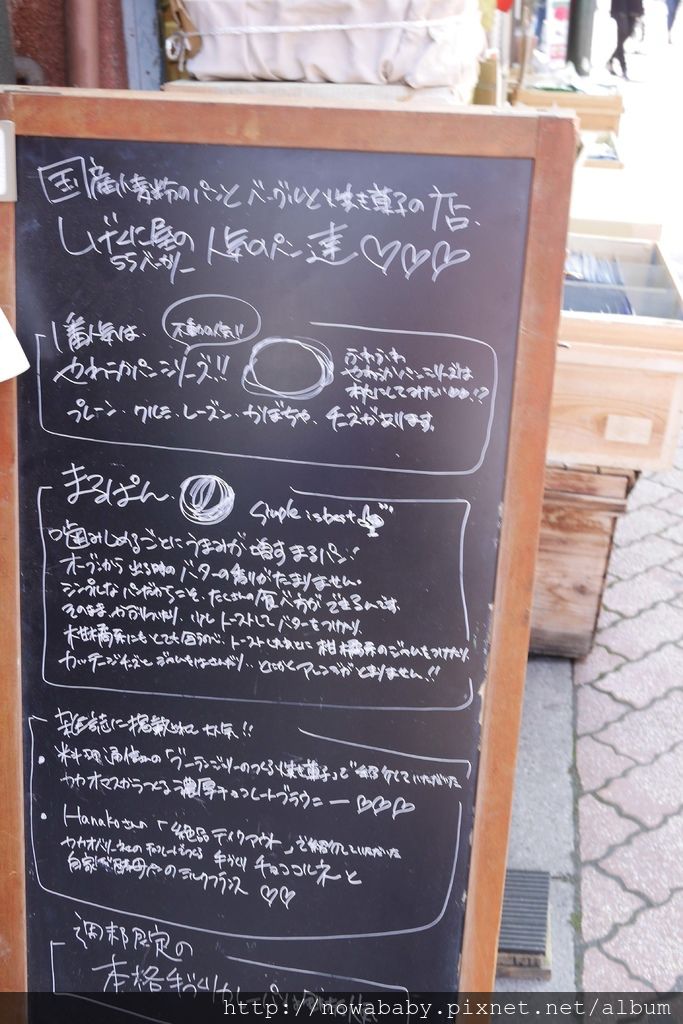 国産小麦粉のパンとベーグルと焼き菓子の店、
しげくに屋の人気のパン達♡♡♡
55ベーカリー
1番人気は、
不動の人気!!
やわらかパンシリーズ!!
ふわふわ
やわらかパンシリーズは
プレーン・クルミ・レーズン・かぼちゃ・チーズがあります。
まるぱん
Simple is best
噛みしめるごとにうまみが増すまるパン!
オーブンから出る時のバターの香りがたまりません。
シンプルなパンだからこそ、たくさんの食べ方ができるんです
そのままかじりついたり、少しトーストしてバターをつけたり、
柑橘系にもとても合うので、トーストしたあとに柑橘系のジャムをつけたり
カッテージチーズとジャムをはさんだり・・とにかくアレンジがとまりません!!
雑誌に掲載されて人気!!
・料理通信の「ブーランジュリーのつくる焼き菓子」で紹介していただいた
カカオマスからつくる濃厚チョコレートブラウニー♡♡♡
・Hanakoさん「絶品テイクアウト」で紹介していただいた
手づくりチョココルネと
自家製酵母のミルクフランス♡♡
調布限定の
本格手づくりカレーパン
http://nowababy.pixnet.net/album